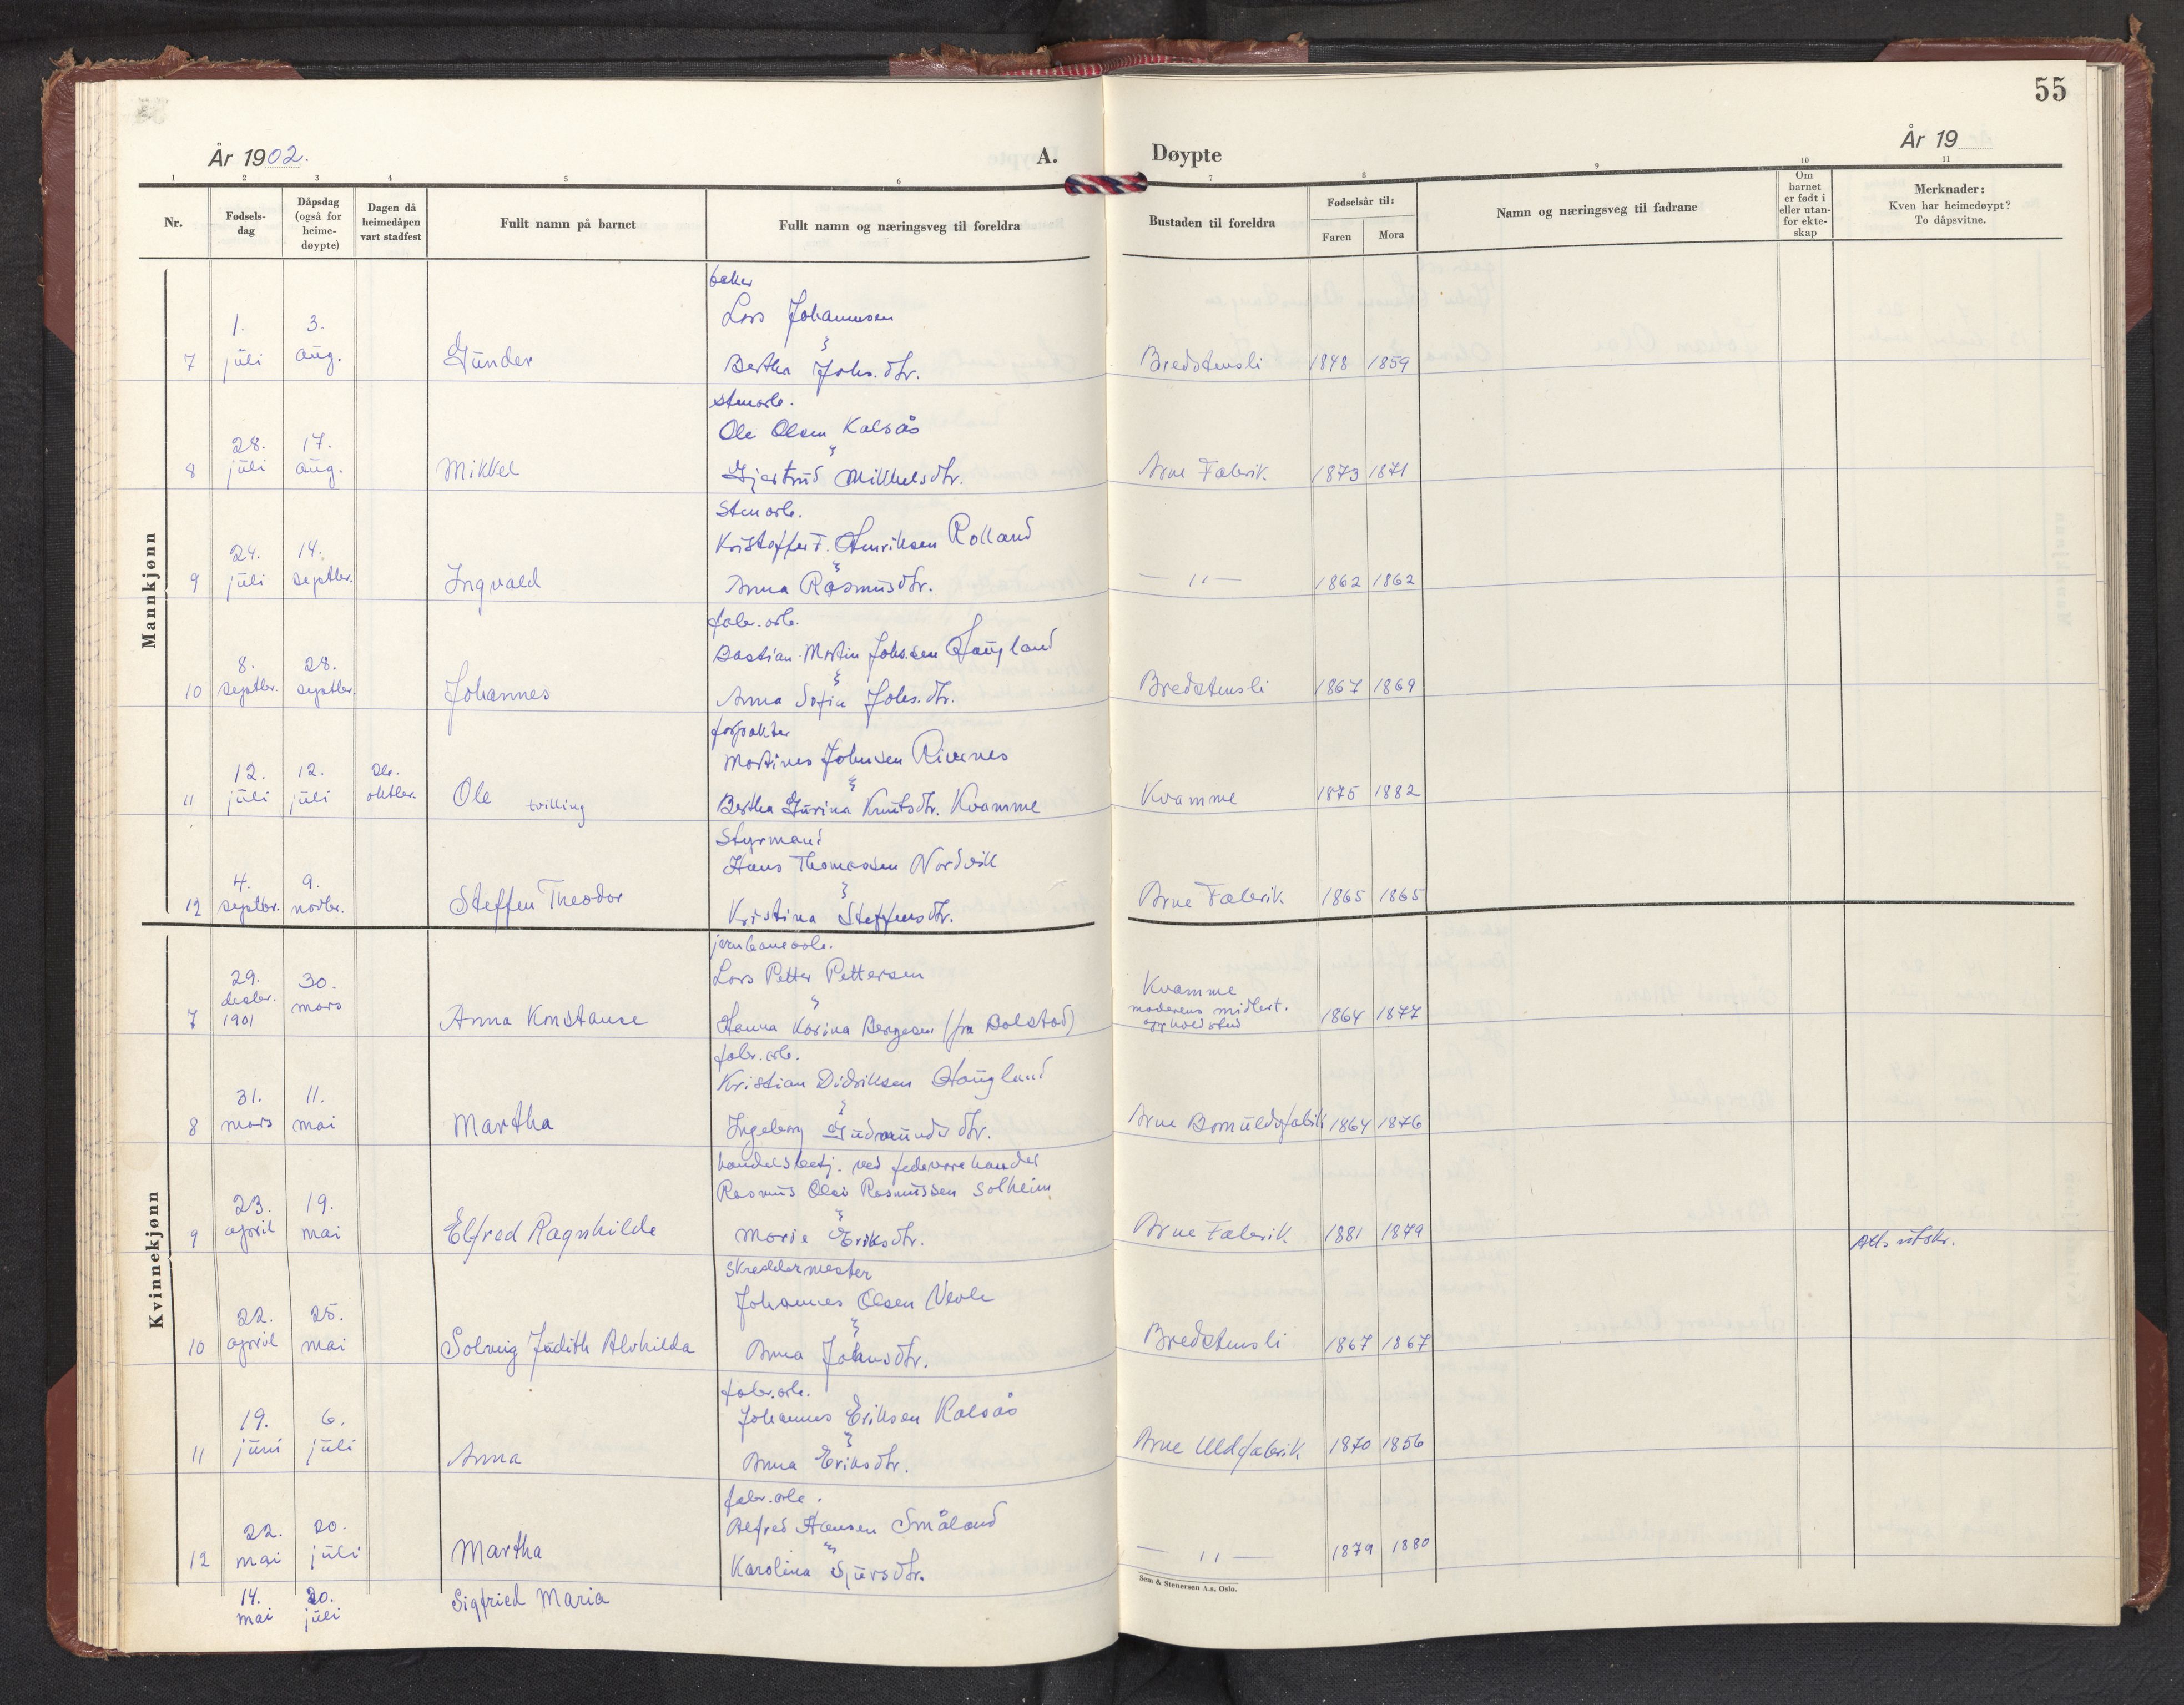 55
År 1902.
A.
Døypte
År 19
1 2 3 4 5 6 7 8 9 10 11
Nr.
Fødsels-
dag
Dåpsdag
(også for
heime-
døypte)
Dagen då
heimedåpen
vart stadfest
Fullt namn på barnet
Fullt namn og næringsveg til foreldra
Bustaden til foreldra
Fødselsår til:
Faren Mora
Namn og næringsveg til fadrane
Om
barnet
er født i
eller utan-
for ekte-
skap
Merknader:
Kven har heimedøypt?
To dåpsvitne.
Mannkjønn
baker
Lars Johannesen
1. 3.
7 juli aug. Gunder Bertha Johs.dtr. Bredstensli 1848 1859
stenarb.
Ole Olsen Kalsås
28. 17.
8 juli aug. Mikkel Gjertrud Mikkelsdtr. Arne Fabrik 1873 1871
Stenarb.
Kristoffer F. Henriksen Rolland
24. 14.
9 juli septbr. Ingvald Anna Rasmusdtr. — " — 1862 1862
fabr.arb.
Bastian Martin Johs.sen Haugland
8. 28.
10 septbr. septbr. Johannes Anna Sofie Johs.dtr. Bredstensli 1867 1869
forpakter
Martines Johnsen Rivenes
12. 12. 26.
11 juli juli oktbr. Ole tvilling Bertha Gurina Knutsdtr. Kvamme Kvamme 1875 1882
Styrmand
Hans Thomassen Nordvik
4. 9.
12 septbr. novbr. Steffen Theodor Kristina Steffensdtr. Arne Fabrik 1865 1865
Kvinnekjønn
jernbanearb.
Lars Petter Pettersen
29. 30. Kvamme
desbr. mars moderens midlert.
7 1901 Anna Konstanse Hanna Karina Bergesen (fra Bolstad) oppholdsted 1864 1877
fabr.arb.
Kristian Didriksen Haugland
31. 11.
8 mars mai Martha Ingeborg Gudmundsdtr. Arne Bomuldsfabrik 1864 1876
handelsbetj. ved fedevarehandel
Rasmus Olai Rasmussen Solheim
23. 19.
9 april mai Elfred Ragnhilde Marie Eriksdtr. Arne Fabrik 1881 1879 Att. utskr.
skreddermester
Johannes Olsen Nevle
22. 25.
10 april mai Solveig Judith Alvhilda Anna Johnsdtr. Bredstensli 1867 1867
fabr.arb.
Johannes Eriksen Kalsås
19. 6.
11 juni juli Anna Anna Eriksdtr. Arne Uldfabrik 1870 1856
fabr.arb.
Alfred Hansen Småland
22. 20.
12 mai juli Martha Karolina Sjursdtr. — " — 1879 1880
14. 20.
mai juli Sigfried Maria
Sem & Stenersen A.s, Oslo.